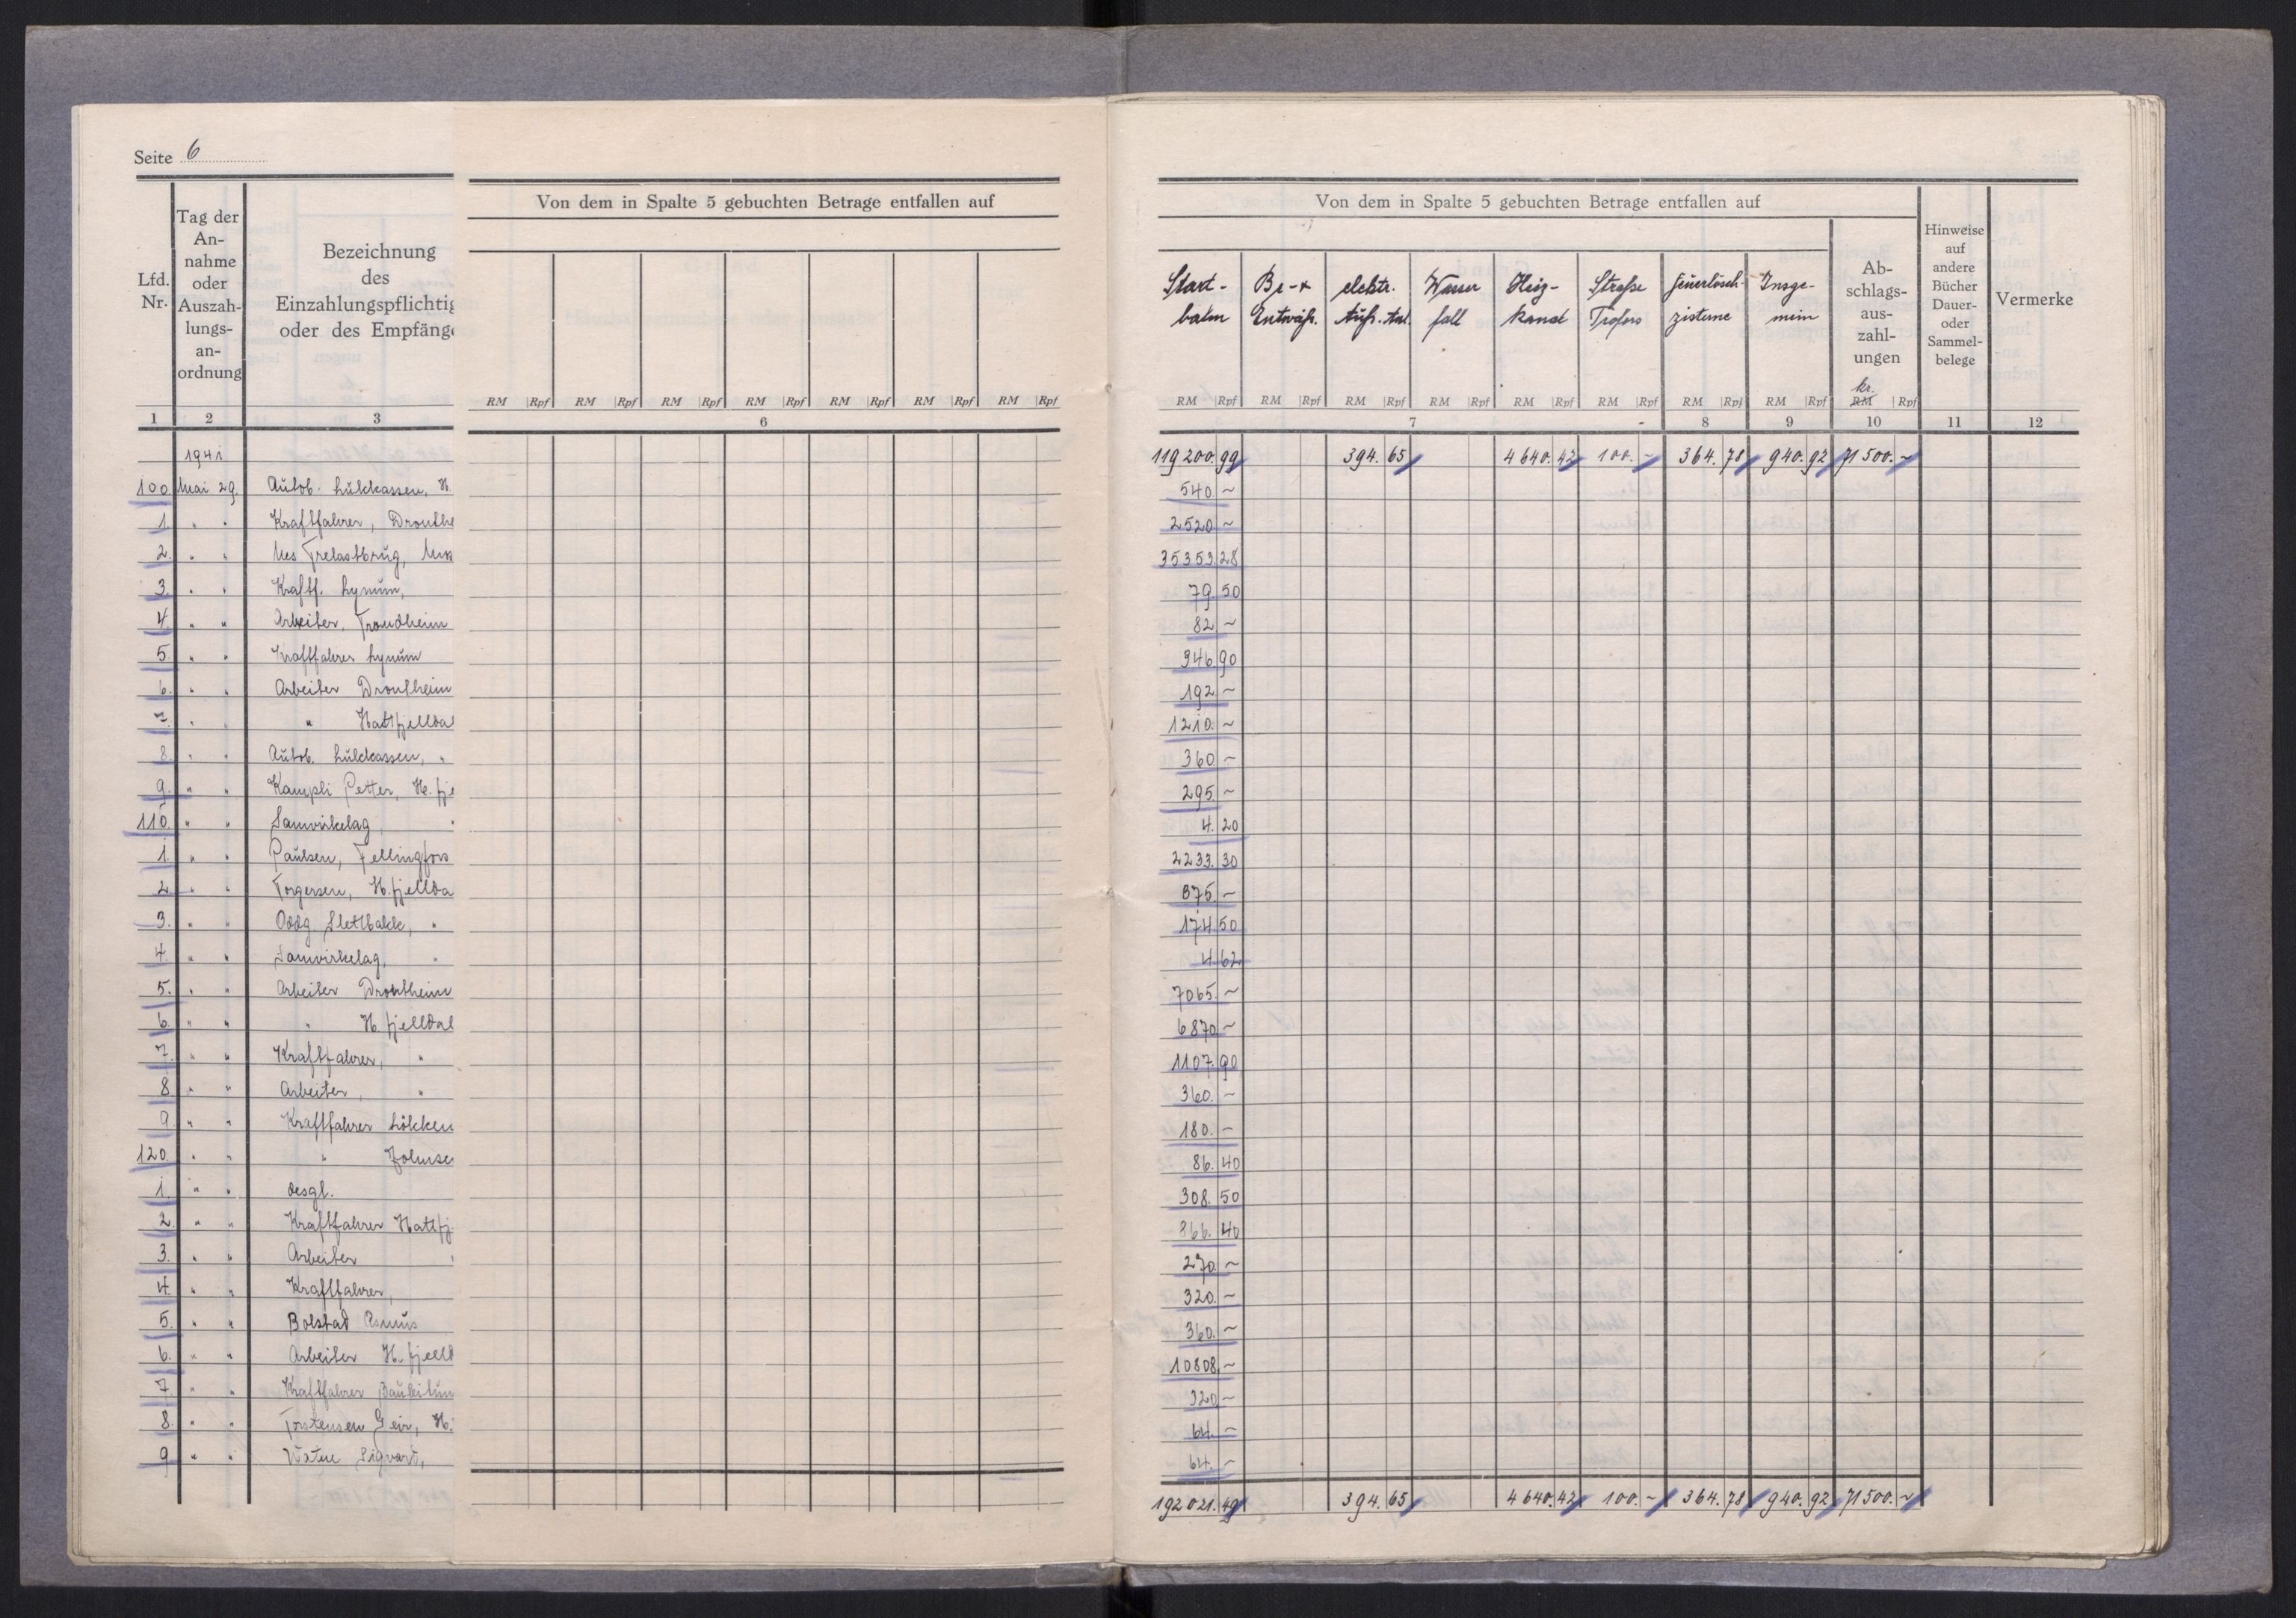 Seite 6
Lfd. Nr.
Tag der An- nahme oder Auszah- lungs- an- ordnung
Bezeichnung des Einzahlungspflichtig oder des Empfänge
Von dem in Spalte 5 gebuchten Betrage entfallen auf
RM Rpf RM Rpf RM Rpf RM Rpf RM Rpf RM Rpf RM Rpf
1 2 3 6
Von dem in Spalte 5 gebuchten Betrage entfallen auf
Start- bahn
Be- & Entwäss.
elektr. Aufs. Anl.
Wasser fall
Heiz- kanal
Straße Trofors
Feuerlösch- zisterne
Insge- mein
Ab- schlags- aus- zahl- ungen
kr.
Hinweise auf andere Bücher Dauer- oder Sammel- belege
Vermerke
RM Rpf RM Rpf RM Rpf RM Rpf RM Rpf RM Rpf RM Rpf RM Rpf RM Rpf
7 8 9 10 11 12
1941 119200.99 394.65 4640.42 100.- 364.78 940.92 71500.-
100 Mai 29. Autob. Lukkassen, H. 540.-
1. " " Kraftfahrer, Dronthe 2520.-
2. " " Mes Trelastbrug, 35353.28
3. " " Kraftf. Lynum, 79.50
4. " " Arbeiter, Trondheim 82.-
5 " " Kraftfahrer Lynum 946.90
6. " " Arbeiter Drontheim 192.-
7. " " " Hattfjelldal 1210.-
8. " " Autob. Lukkassen, " 360.-
9. " " Kampli Petter, H. fje 295.-
110. " " Samvirkelag, " 4.20
1. " " Paulsen, Fellingfors 2233.30
2. " " Torgersen, H. fjellda 875.-
3. " " Oddg. Sletbakk, " 174.50
4. " " Samvirkelag, " 4.62
5. " " Arbeiter Drontheim 7065.-
6. " " " H. fjelldal 6870.-
7. " " Kraftfahrer, " 1107.90
8. " " Arbeiter, " 360.-
9. " " Kraftfahrer Lökken 180.-
120. " " " Johnse 86.40
1. " " desgl. 308.50
2. " " Kraftfahrer Hattfj 866.40
3. " " Arbeiter " 270.-
4. " " Kraftfahrer, 320.-
5. " " Bolstad Asmus 360.-
6. " " Arbeiter H. fjelld 10808.-
7. " " Kraftfahrer Bauleitun 320.-
8. " " Torstensen Geir, H. 64.-
9 " " Sigvart, 64.-
192021.49 394.65 4640.42 100.- 364.78 940.92 71500.-